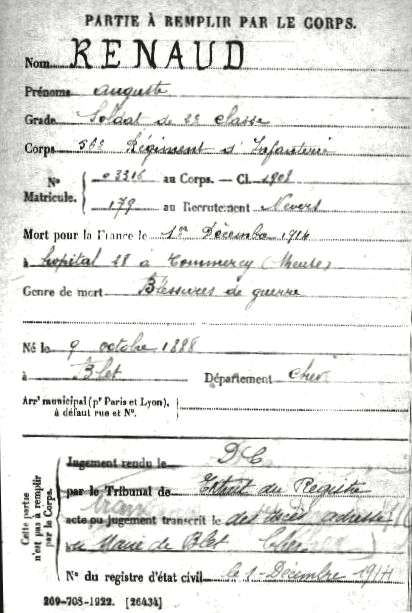 PARTIE À REMPLIR PAR LE CORPS.
Nom RENAUD
Prénoms auguste
Grade Soldat de 2e classe
Corps Régiment d'Infanterie
N° Matricule. { 03316 au Corps. — Cl. 1908
179 au Recrutement Nevers
Mort pour la France le 1er Décembre 1914
à hopital 28 a Commercy (Meuse)
Genre de mort Blessures de guerre
Né le 9 octobre 1888
à Blet Département Cher
Arrt municipal (pr Paris et Lyon), à défaut rue et N°.
Cette partie n'est pas à remplir par le Corps.
Jugement rendu le DC
par le Tribunal de Extrait du Registre
acte ou jugement transcrit le des décès adressé
Mairie de Blet Cher
N° du registre d'état civil le 1 Décembre 1914
269-708-1922. [26434]